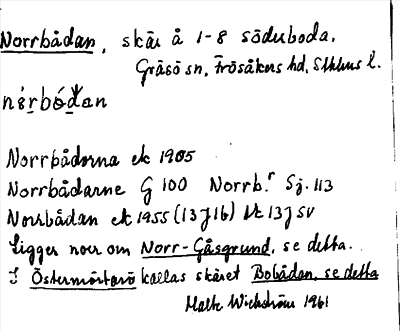 Norrbådan, skär å 1-8 söderboda.
Gräsö sn, Frösåkers hd, Sthlms l.
Norrbådorna ek 1905
Norrbådarne G 100 Norrb.r Sj. 113
Norrbådan ek 1955 (13 J 16) 13 J SV
Ligger norr om Norr-Gåsgrund, se detta.
I Östermörtarö kallas skäret Bobådan, se detta
Malte Wickström 1961